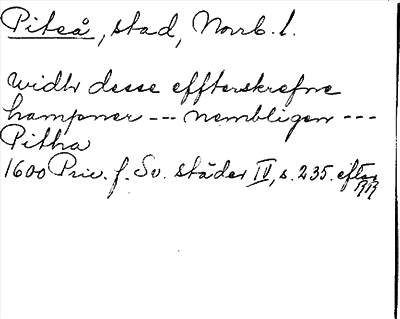 Piteå, stad, Norrb. l.
widh desse effterskrefne
hampner --- nembligen ---
Pitha
1600 Priv. f. Sv. städer IV, s. 235. efter